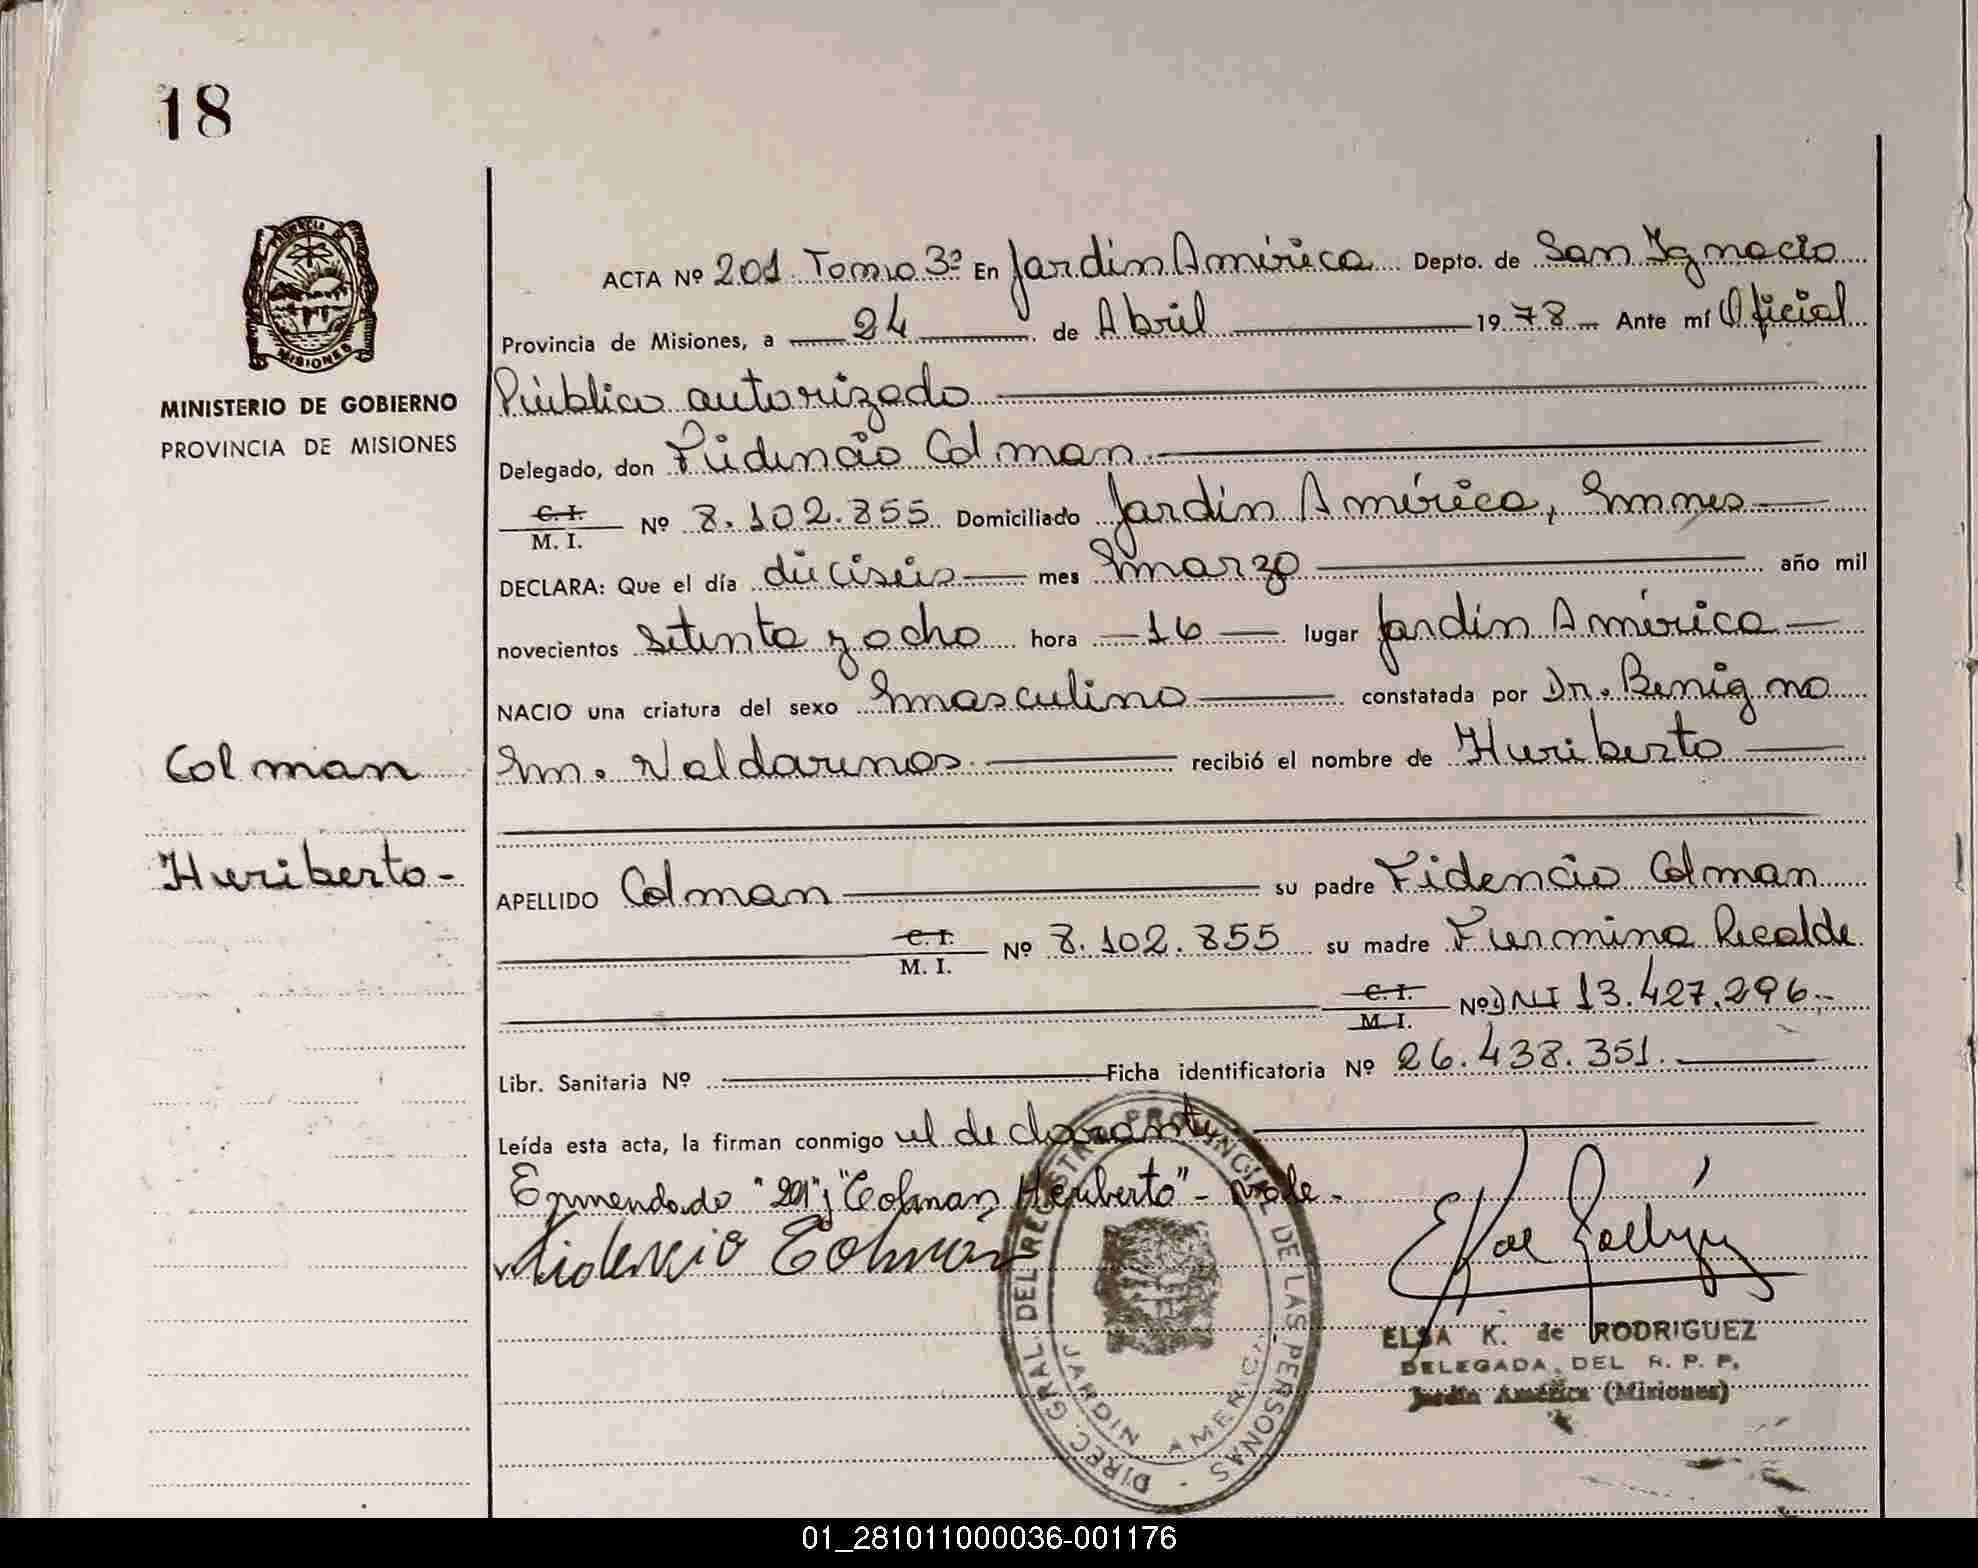 18
PROVINCIA DE
MISIONES
MINISTERIO DE GOBIERNO
PROVINCIA DE MISIONES
ACTA Nº 201 Tomo 3º En Jardín América Depto. de San Ignacio
Provincia de Misiones, a 24 de Abril 1978 Ante mí Oficial
Público autorizado
Delegado, don Fidencio Colman
C. I.
M. I. Nº 8.102.855 Domiciliado Jardín América, Mnes
DECLARA: Que el día dieciseis mes Marzo año mil
novecientos setenta y ocho hora 16 lugar Jardín América
NACIO una criatura del sexo Masculino constatada por Dr. Benigno
M. Valdarenas recibió el nombre de Heriberto
Colman
Heriberto-
APELLIDO Colman su padre Fidencio Colman
C. I.
M. I. Nº 8.102.855 su madre Fermina Recalde
C. I.
M. I. Nº DNI 13.427.296.-
Libr. Sanitaria Nº Ficha identificatoria Nº 26.438.351.
Leída esta acta, la firman conmigo el declarante
Enmendado "201"; "Colman, Heriberto" - Vale.-
Fidencio Colman
DIREC. GRAL DEL REGISTRO PROVINCIAL DE LAS PERSONAS -
JARDIN AMERICA
ELSA K. de RODRIGUEZ
DELEGADA DEL R. P. P.
Jardín América (Misiones)
01_281011000036-001176